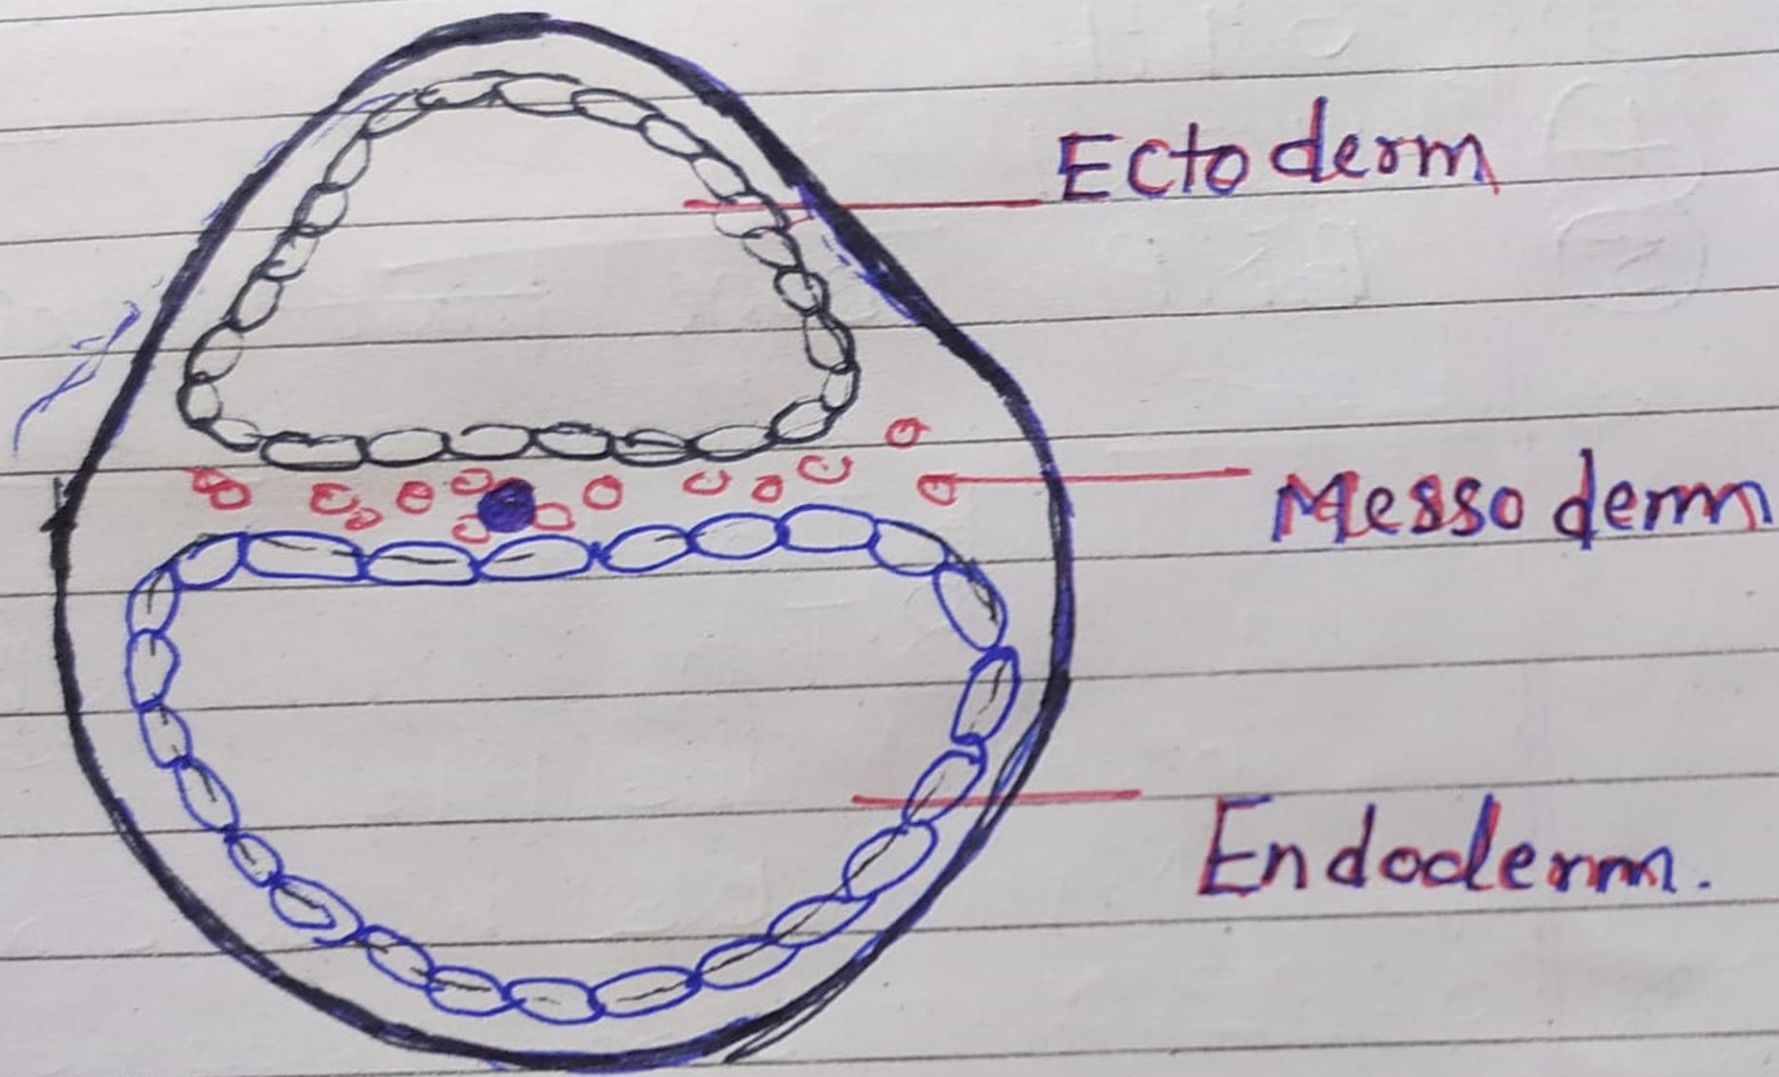 Ectoderm
Messoderm
Endoderm.